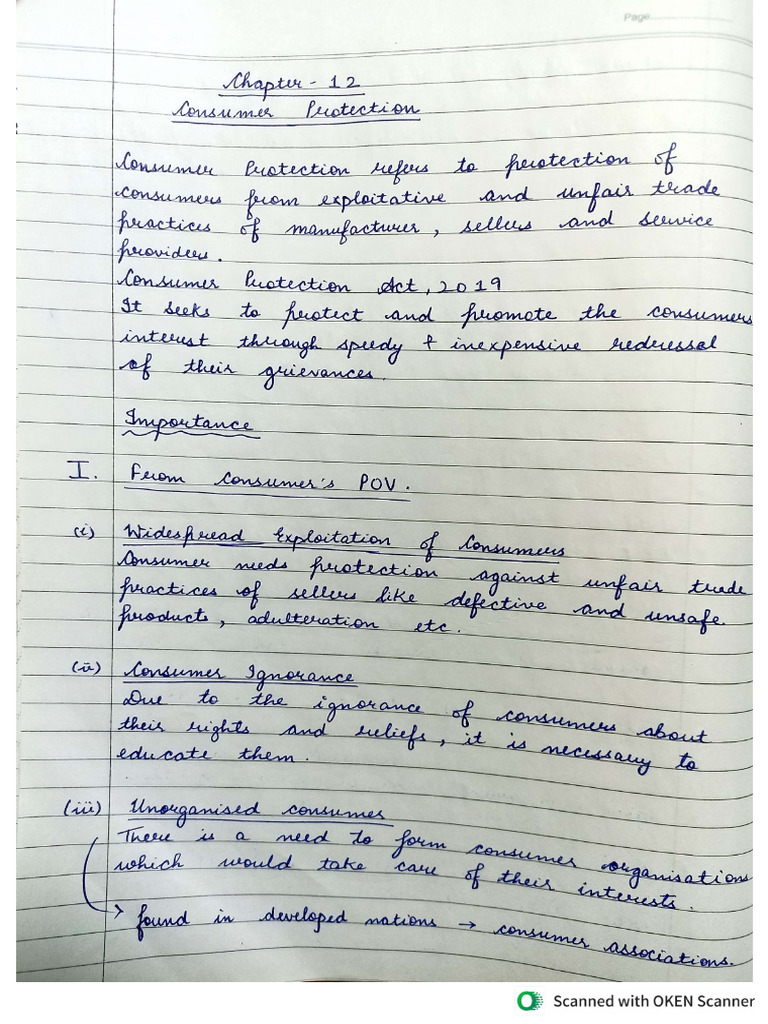 Page
Chapter - 12
Consumer Protection
Consumer Protection refers to protection of
consumers from exploitative and unfair trade
practices of manufacturer, sellers and service
providers.
Consumer Protection Act, 2019
It seeks to protect and promote the consumers
interest through speedy + inexpensive redressal
of their grievances.
Importance
I. From Consumer's POV.
(i) Widespread Exploitation of Consumers
Consumer needs protection against unfair trade
practices of sellers like defective and unsafe
products, adulteration etc.
(ii) Consumer Ignorance
Due to the ignorance of consumers about
their rights and reliefs, it is necessary to
educate them.
(iii) Unorganised consumes
There is a need to form consumer organisations
which would take care of their interests.
→ found in developed nations → consumer associations.
Scanned with OKEN Scanner